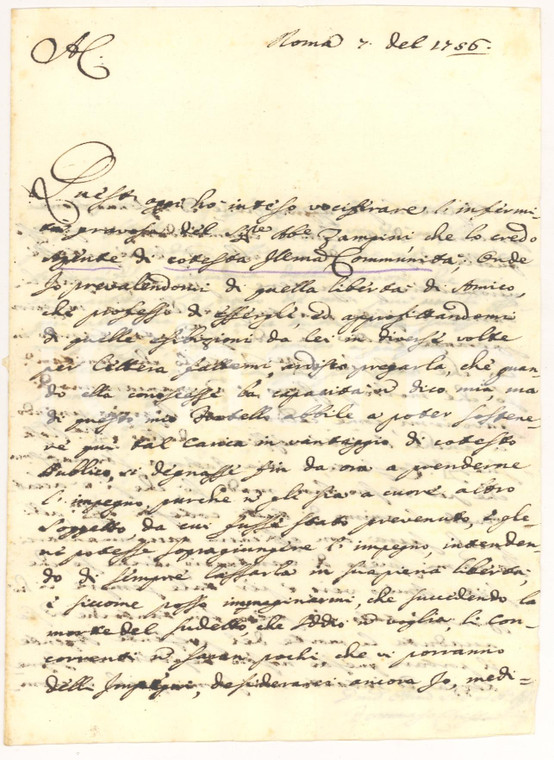 AC.
Roma 7. del 1756.
Quest' oggi ho inteso vociferare l'infirmi-
tà gravosa del Sig.re Ab.e Zampini che lo credo
Agente di cotesta Illma Communità, Onde
Io prevalendomi di quella libertà di Amico,
che professo di essergli, ed approfittandomi
di quelle esibizioni da lei in diverse volte
per lettera fattemi, ardisco pregarla, che quan-
do ella conoscesse la capacità n dico mia, ma
di questo mio Fratello abbile a poter sostene-
re quì tal Carica in vantaggio di cotesto
Publico, si degnasse fin da ora a prenderne
l'impegno purche n gli sia a cuore altro
Soggetto, da cui fusse stato prevenuto, è gle
ne potesse sopragiungere l'impegno, intenden-
do di sempre lassarla in sua piena libertà,
è siccome posso immaginarmi, che succedendo la
morte del sudetto, che Iddio n voglia, li Con-
correnti n saran pochi, che vi porranno
delli Impegni, desiderarei ancora Io, medi-